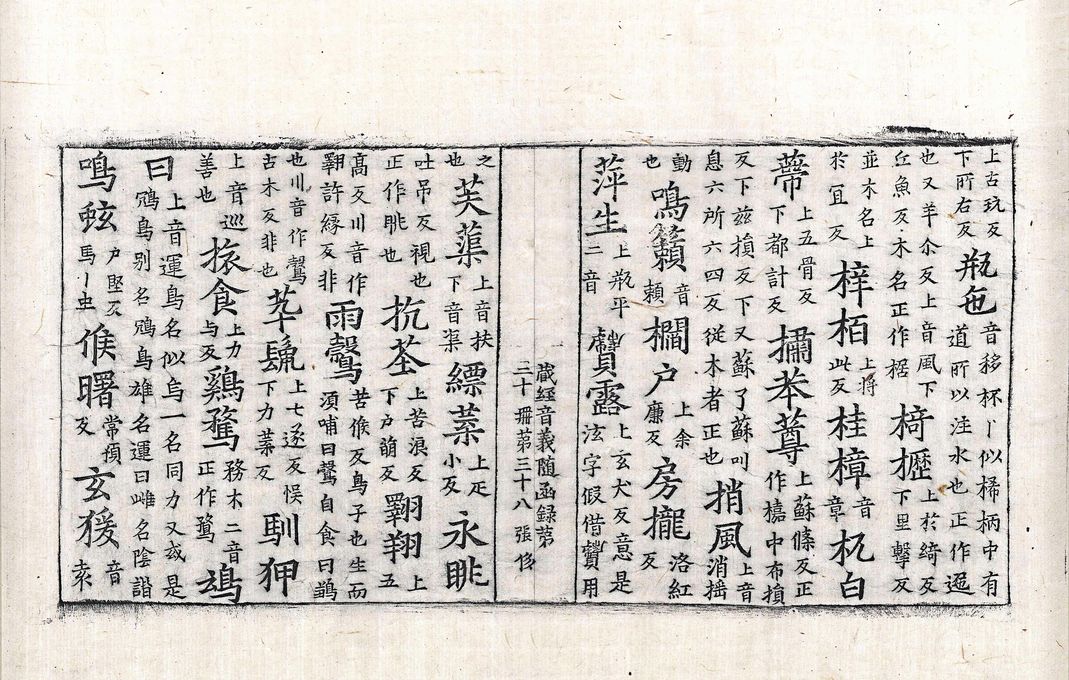 上古玩反下所右反
瓶㐌
音移杯丨似桸柄中有道所以注水也正作迤
也又羊余反上音風下丘魚反木名正作椐
椅櫪
上於綺反下里擊反
並木名上於宜反
梓栢
上將此反
桂樟
音章
杌白
蔕
上五骨反下都計反
橚䒷蓴
上蘇條反正作㯓中布損
反下兹損反下又蘇了蘇叫息六所六四反從木者正也
捎風
上音消揺
動也
鳴籟
音頼
櫩户
上余廉反
房櫳
洛紅反
萍生
上瓶平二音
贙露
上玄犬反意是泫字假借贙用
藏経音義随函録第三十 冊第三十八 張侈
之也
芙蕖
上音扶下音渠
縹菜
上疋小反
永眺
吐吊反視也正作眺也
抗荃
上苦浪反下户萌反
翾翔
上五
高反川音作翾許緣反非
雨鷇
苦候反鳥子也生而湏哺曰鷇自食曰鶵
也川音作鷇古木反非也
上七逐反悮下力葉反
馴狎
上音巡善也
振食
上力与反
鷄鶩
務木二音正作鶩
鴆
曰
上音運鳥名似烏一名同力又或是鴆鳥别名鴆鳥雄名運曰雌名陰諧
鳴蚿
户堅反馬丨虫
倏曙
常預反
玄猨
音袁